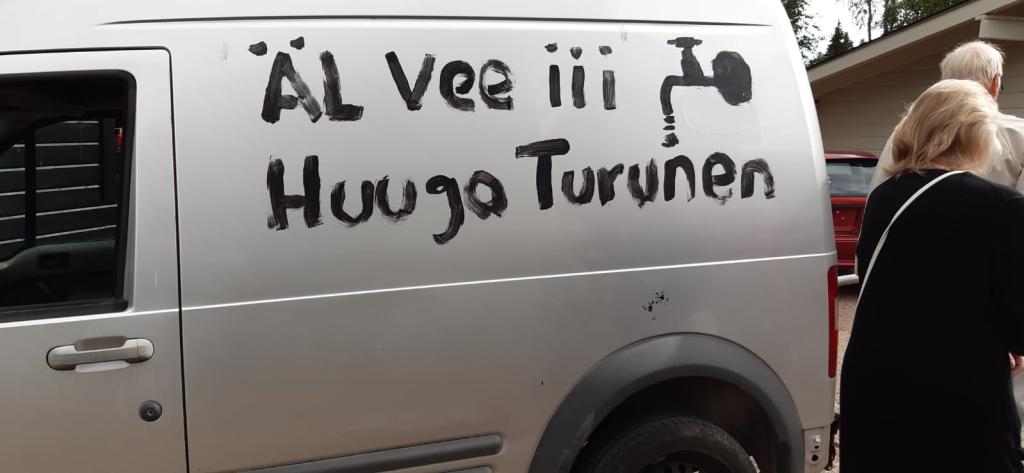 ÄL Vee iii
Huugo Turunen